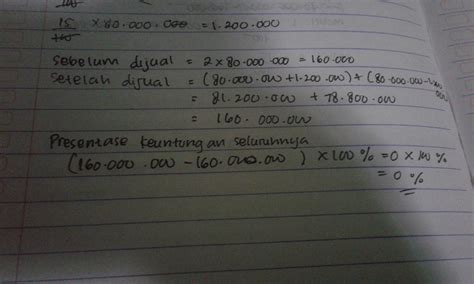 15/100 × 80.000.000 = 1.200.000
Sebelum dijual = 2 × 80.000.000 = 160.000
Setelah dijual = (80.000.000 + 1.200.000) + (80.000.000 - 1.200.000
= 81.200.000 + 78.800.000
= 160.000.000
Presentase keuntungan seluruhnya
(160.000.000 - 160.000.000) × 100% = 0 × 100%
= 0%